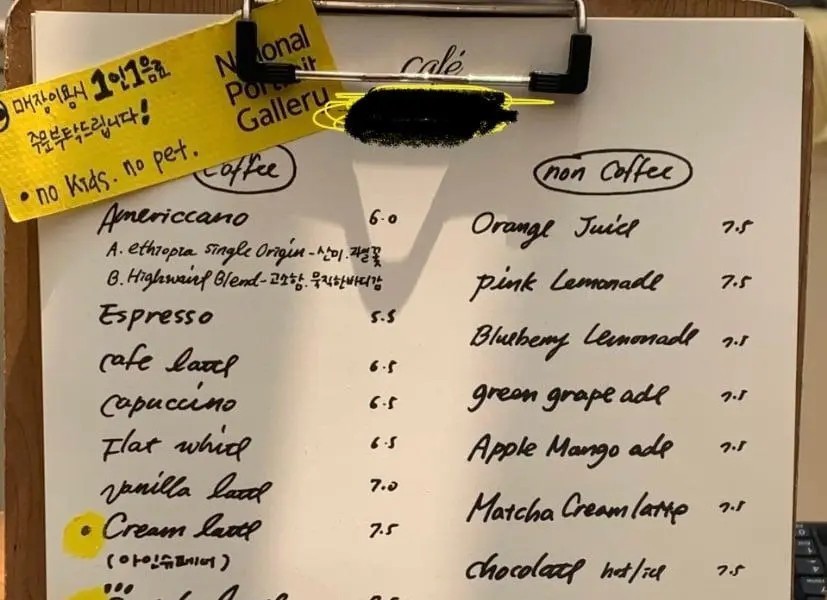 매장이용시 1인1음료
주문부탁드립니다!
• no kids. no pet.
National
Portrait
Gallery
café
Coffee
Americcano 6.0
A. ethiopia single Origin - 산미.과일꽃
B. Highwaird Blend - 고소함.묵직한바디감
Espresso 5.5
cafe latte 6.5
capuccino 6.5
Flat white 6.5
vanilla latte 7.0
• Cream latte 7.5
(아인슈페너)
non Coffee
Orange Juice 7.5
pink Lemonade 7.5
Blueberry Lemonade 7.5
green grape ade 7.5
Apple Mango ade 7.5
Matcha Cream latte 7.5
chocolate hot/ice 7.5